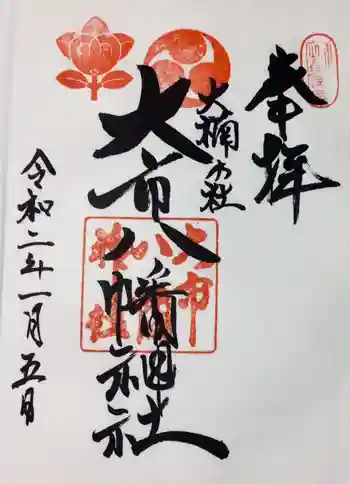 奉拝
大楠の社
大市八幡神社
令和二年一月五日